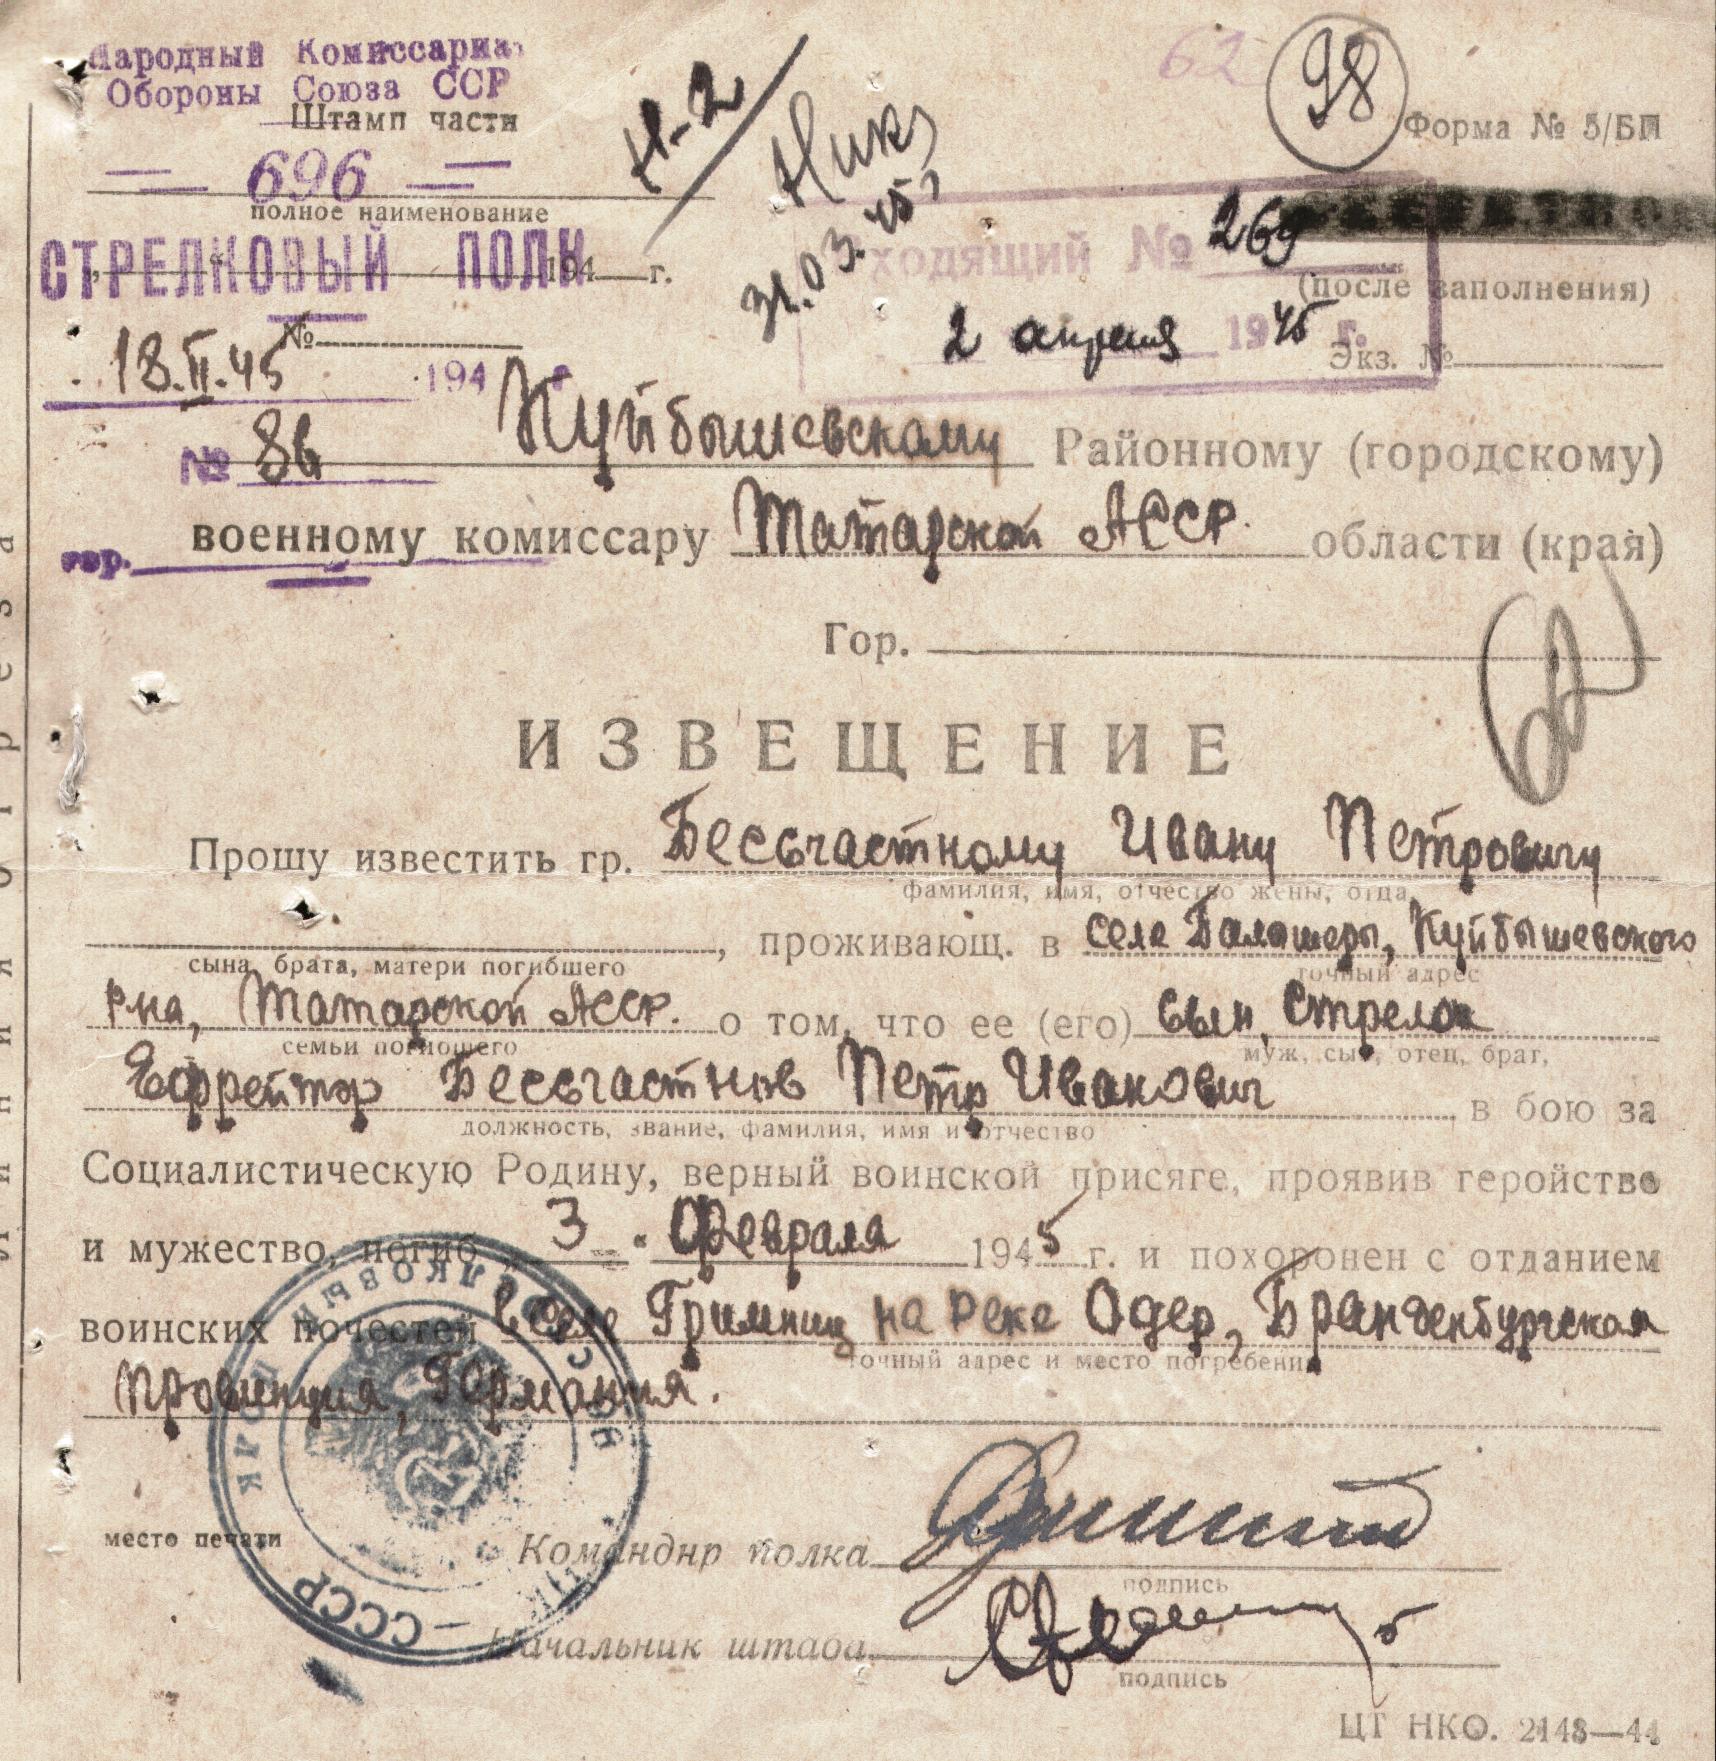 Народный Комиссариат
Обороны Союза ССР
Штамп части
696
полное наименование
СТРЕЛКОВЫЙ ПОЛК
194 г.
№
18.II.45 194 г
№ 8в
гор.
Н-2
31.03.45
62
98
Форма № 5/БП
ходящий № 269
(после заполнения)
2 апреля 1945 г.
Экз. №
Куйбышевскому Районному (городскому)
военному комиссару Татарской АССР. области (края)
Гор.
ИЗВЕЩЕНИЕ
Прошу известить гр. Бессчастному Ивану Петровичу
фамилия, имя, отчество жены, отца,
, проживающ. в селе Балашеры, Куйбышевского
сына, брата, матери погибшего
точный адрес
р-на, Татарской АССР. о том, что ее (его) сын, Стрелок
семьи погибшего
муж, сын, отец, брат,
Ефрейтор Бессчастнов Петр Иванович в бою за
должность, звание, фамилия, имя и отчество
Социалистическую Родину, верный воинской присяге, проявив геройство
и мужество, погиб „ 3 " Февраля 1945 г. и похоронен с отданием
воинских почестей в селе Гримниц на реке Одер, Бранденбургская
точный адрес и место погребения
провинция, Германия.
место печати
СТРЕЛКОВЫЙ ПОЛК
НКО — СССР
Командир полка
подпись
Начальник штаба
подпись
ЦТ НКО. 2148—44
Линия отреза